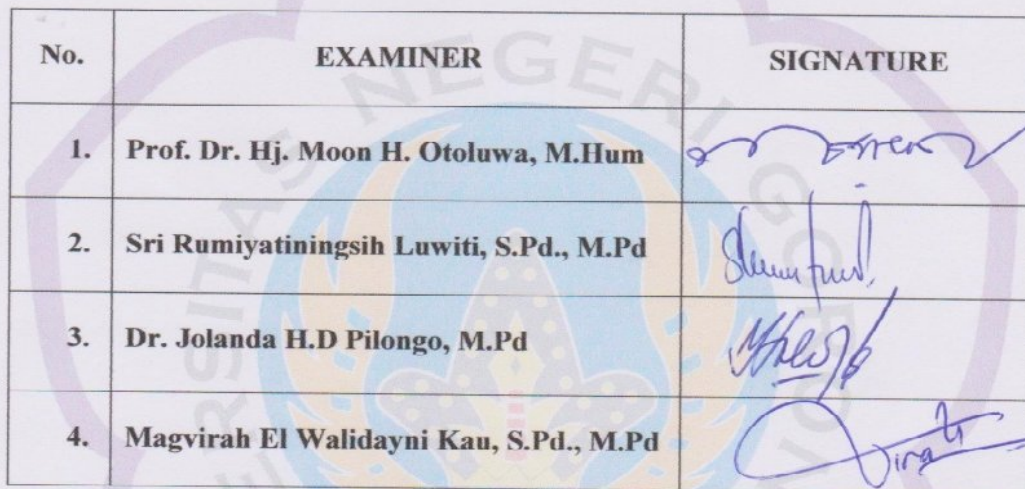 No. EXAMINER SIGNATURE
1. Prof. Dr. Hj. Moon H. Otoluwa, M.Hum
2. Sri Rumiyatiningsih Luwiti, S.Pd., M.Pd
3. Dr. Jolanda H.D Pilongo, M.Pd
4. Magvirah El Walidayni Kau, S.Pd., M.Pd
SITAS NEGERI GO